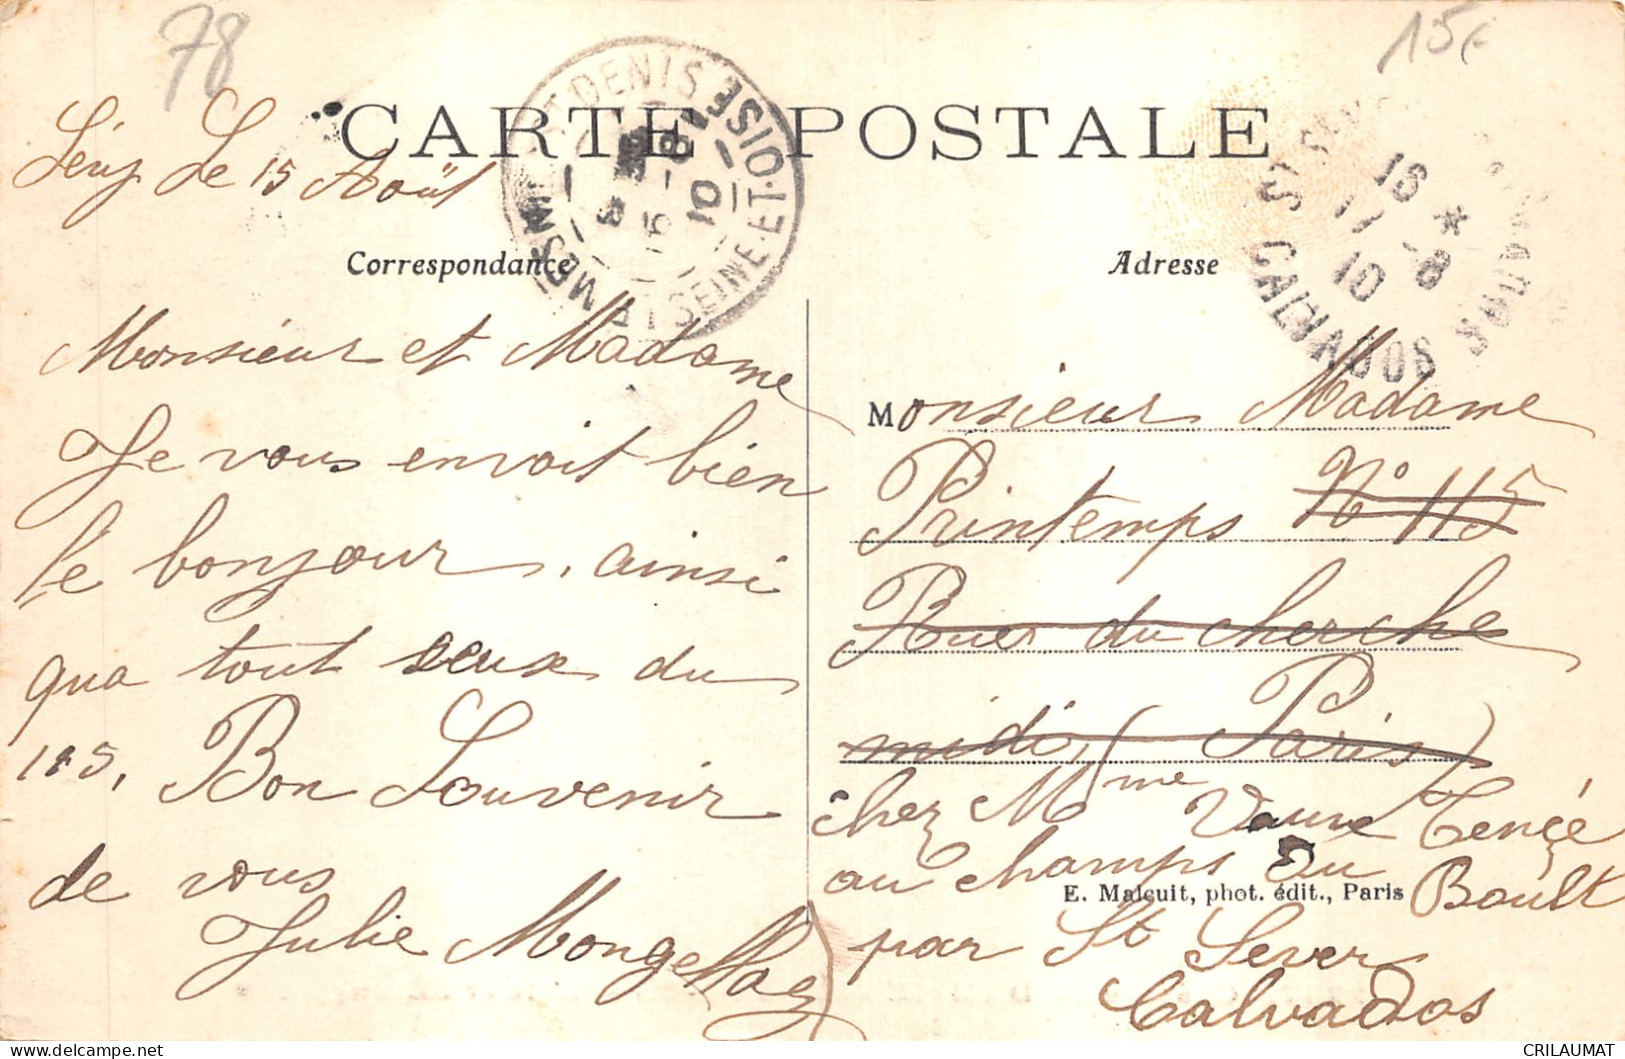 78
15€
CARTE POSTALE
Le 15 Août
Correspondance
Adresse
MESNIL ST DENIS
SEINE-ET-OISE
10
ST SEVER
CALVADOS
16 *
17 -8
10
Monsieur et Madame
Je vous envoit bien
le bonjour, ainsi
qua tout seux du
115, Bon Souvenir
de vous
Julie
Monsieur Madame
Printemps N° 115
Rue du cherche
midi Paris
chez Mme Vauve
au champs du Boult
par St Sever
Calvados
E. Malcuit, phot. édit., Paris
CRILAUMAT